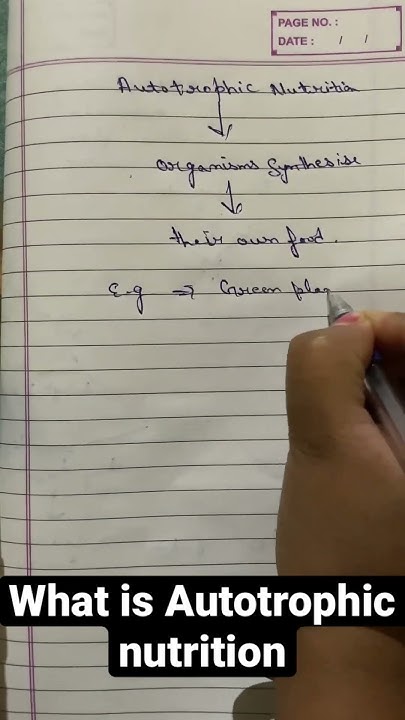 PAGE NO. :
DATE : / /
Autotrophic Nutrition
Organisms Synthesise
their own food.
E.g ⇒ Green pla
What is Autotrophic
nutrition